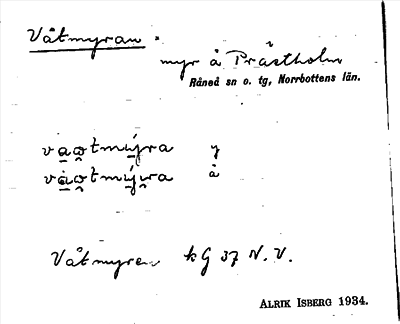 Våtmyran.
myr å Prästholm
Råneå sn o. tg, Norrbottens län.
vaotmýra y
vàotmýra å
Våtmyren kG 37 N.V.
ALRIK ISBERG 1934.